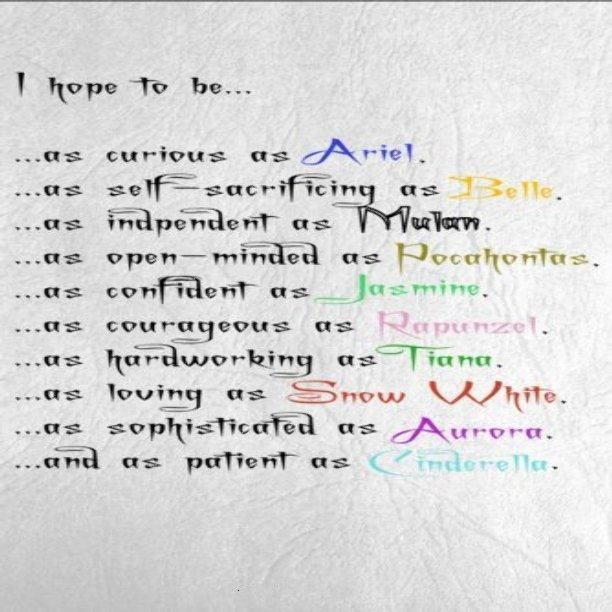 I hope to be...
...as curious as Ariel.
...as self-sacrificing as Belle.
...as indpendent as Mulan.
...as open-minded as Pocahontas.
...as confident as Jasmine.
...as courageous as Rapunzel.
...as hardworking as Tiana.
...as loving as Snow White.
...as sophisticated as Aurora.
...and as patient as Cinderella.